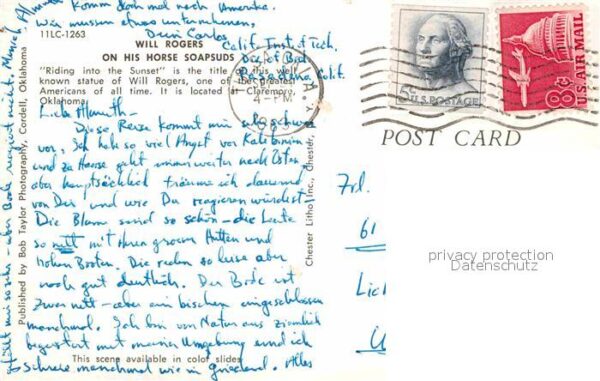 Komm doch mal nach Amerika.
Wir müssen etwas unternehmen.
Dein Carlos
11LC-1263
WILL ROGERS
ON HIS HORSE SOAPSUDS
"Riding into the Sunset" is the title of this well
known statue of Will Rogers, one of the greatest
Americans of all time. It is located at Claremore,
Oklahoma.
Calif. Inst. of Tech.
Div. of Biol
Pasadena Calif.
4-PM
5¢ U.S. POSTAGE
8¢ U.S. AIR MAIL
POST CARD
Liebe Almuth—
Diese Reise kommt mir sehr schwer
vor. Ich habe so viel Angst vor Kalifornien
und zu Hause geht immer weiter nach Osten,
aber hauptsächlich träume ich dauernd
von Dir und wie Du reagieren würdest.
Die sind so schön – die Leute
so nett mit ihren grossen Hütten und
hohen Booten. Die reden so leise aber
noch gut deutlich. Der Bode ist
zwar nett – aber ein bischen eingeschlossen
manchmal. Ich bin von Natur aus ziemlich
begeistert mit meiner Umgebung und ich
Schreie manchmal wie in Griechenland. Alles
mir so sehr – aber Bode reagiert nicht. Mensch, Almuth
Published by Bob Taylor Photography, Cordell, Oklahoma
Chester Litho Inc., Chester,
This scene available in color slides
Frl.
61
privacy protection
Datenschutz